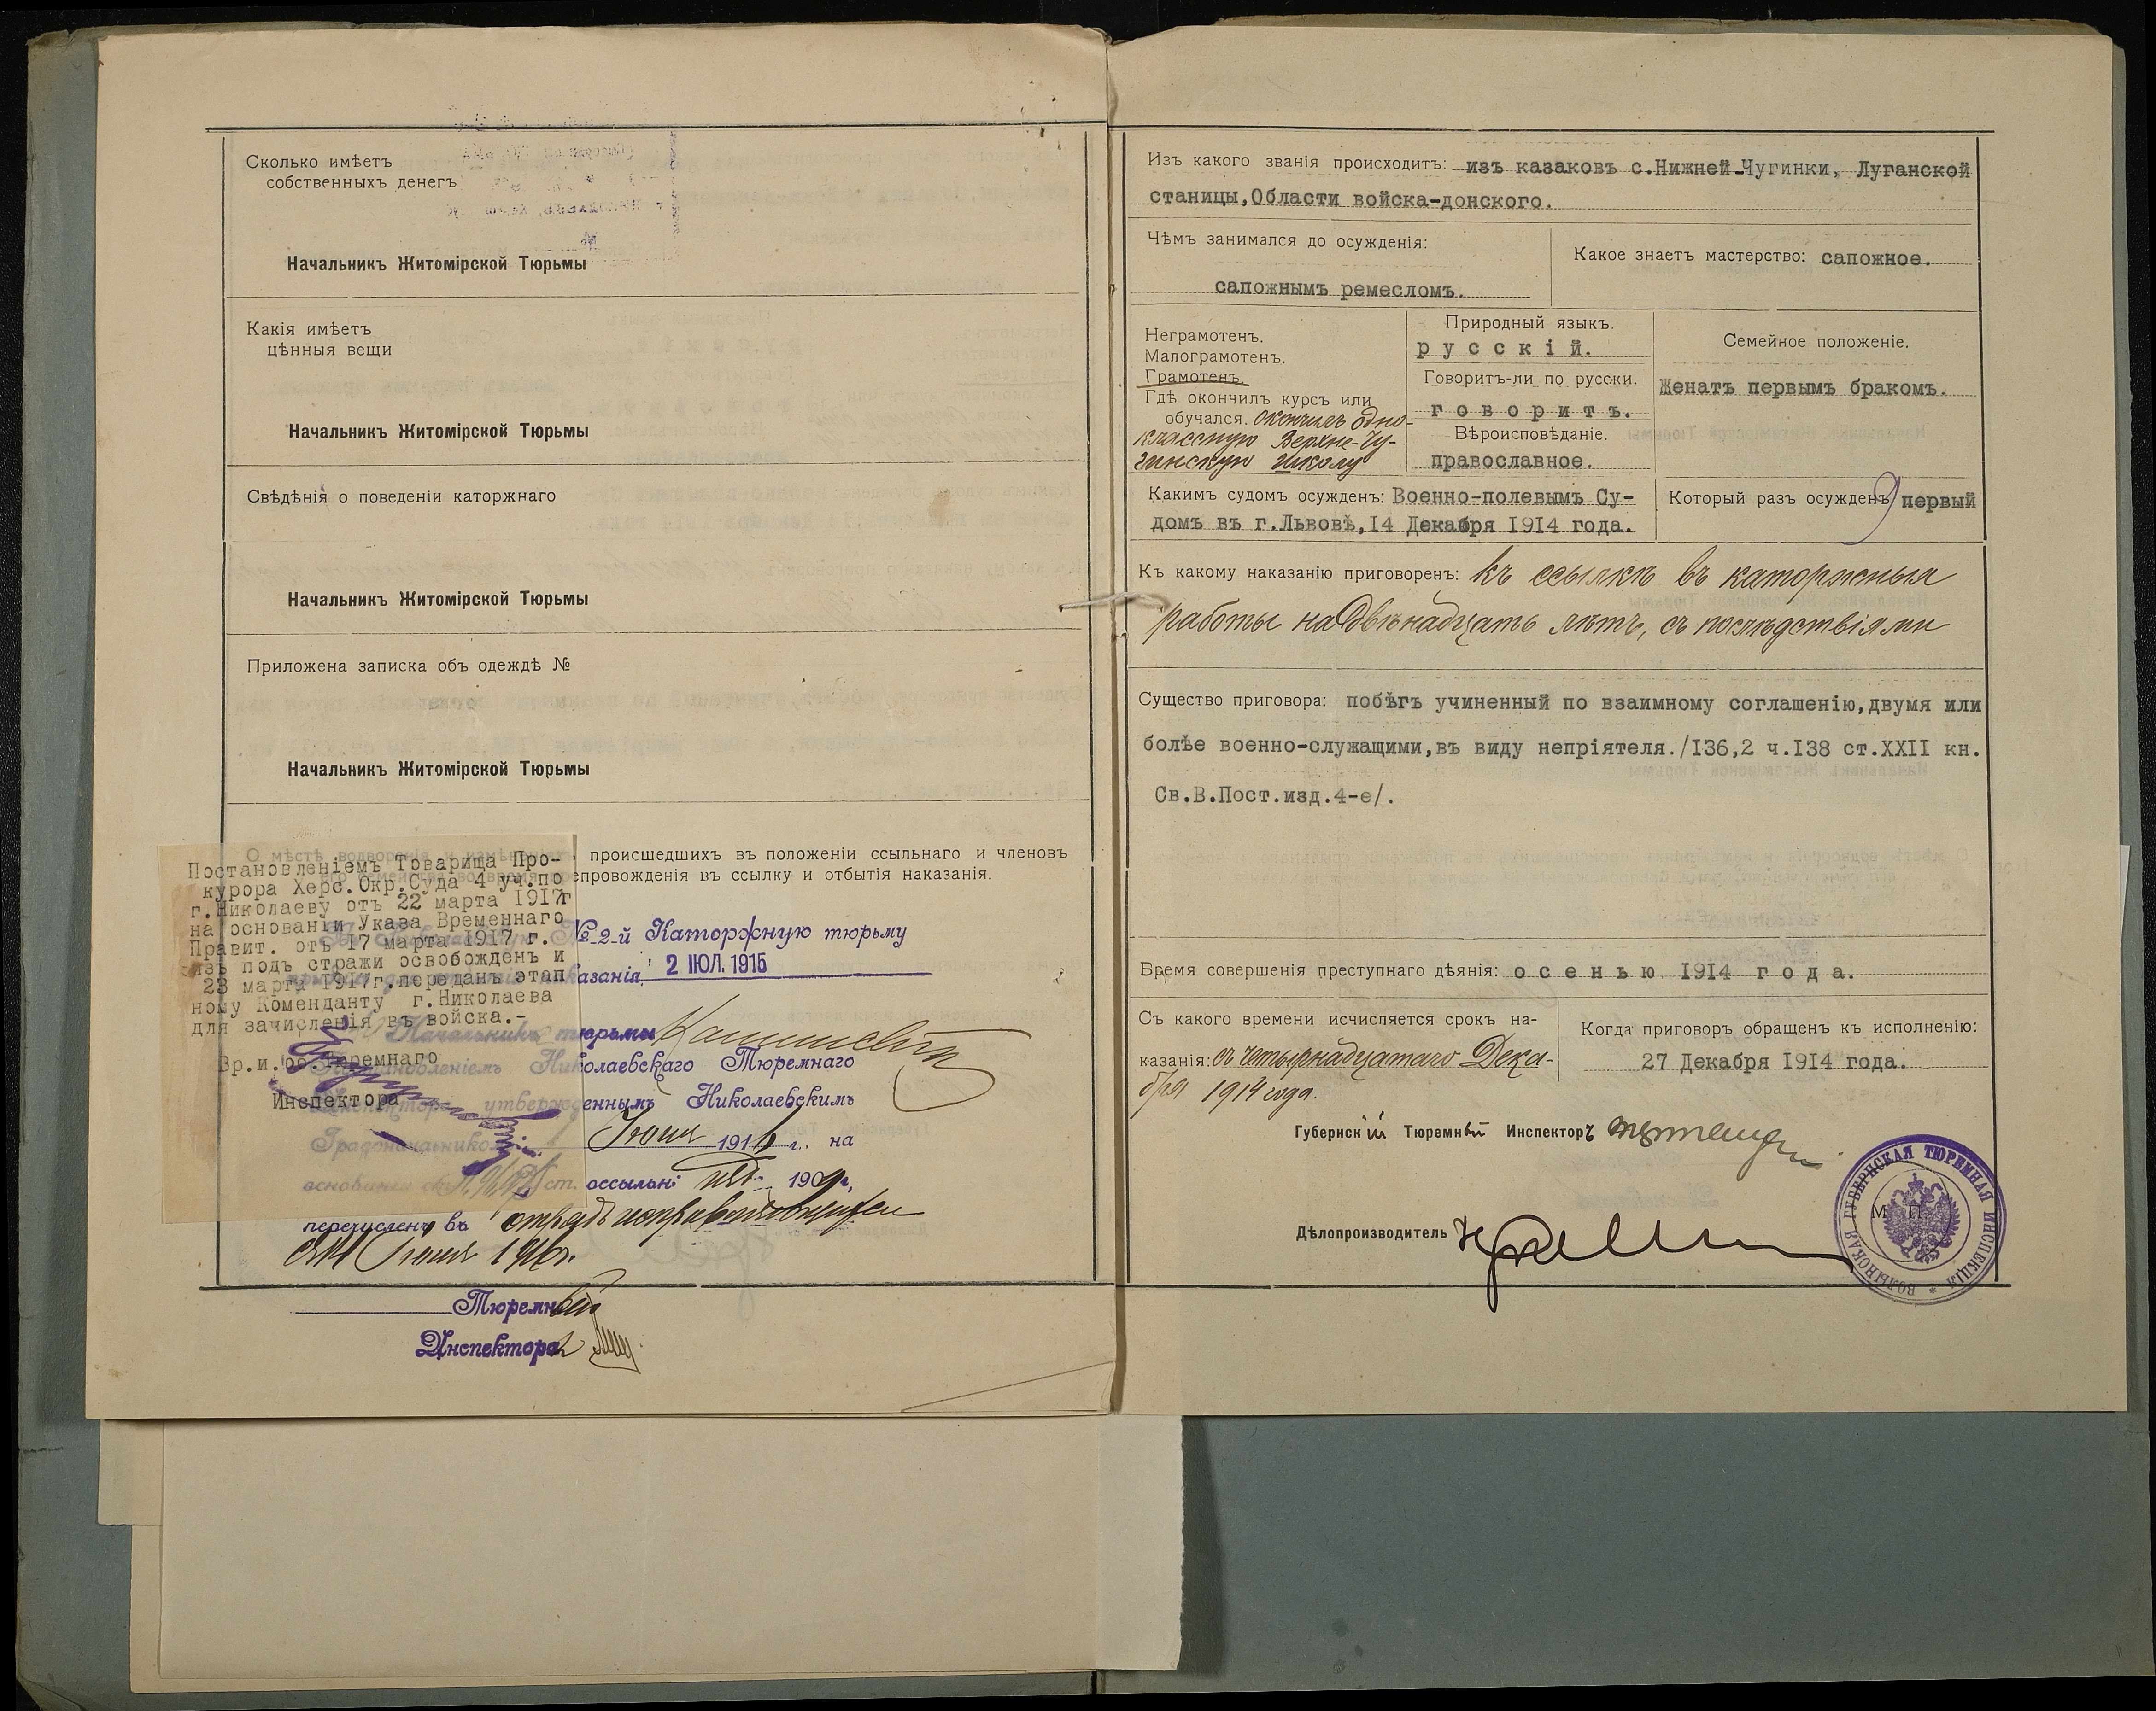 Сколько имѣетъ
собственныхъ денегъ
Начальникъ Житомірской Тюрьмы
Какія имѣетъ
цѣнныя вещи
Начальникъ Житомірской Тюрьмы
Свѣдѣнія о поведеніи каторжнаго
Начальникъ Житомірской Тюрьмы
Приложена записка объ одеждѣ №
Начальникъ Житомірской Тюрьмы
О мѣстѣ водворенія и измѣненіяхъ, происшедшихъ въ положеніи ссыльнаго и членовъ
епровожденія въ ссылку и отбытія наказанія.
Постановленіемъ Товарища Про-
курора Херс.Окр.Суда 4 уч.по
г.Николаеву отъ 22 марта 1917г
на основаніи Указа Временнаго
Правит. отъ 17 марта 1917 г.
изъ подъ стражи освобожденъ и
23 марта 1917г.переданъ этап
ному Коменданту г.Николаева
для зачисленія въ войска.-
Вр.и.об.Тюремнаго
Инспектора
№ 2-й Каторжную тюрьму
азанія. 2 ІЮЛ. 1915
Начальникъ тюрьмы
Постановленіемъ Николаевскаго Тюремнаго
Инспектора утвержденнымъ Николаевскимъ
Градоначальникомъ 1 Іюня 1916 г. на
основаніи ст. ст. оссыльн. изд. 1909г.
перечисленъ въ отрядъ исправляющихся
Іюня 1916г.
Тюремный
Инспекторъ
Изъ какого званія происходитъ: изъ казаковъ с.Нижней-Чугинки, Луганской
станицы,Области войска-донского.
Чѣмъ занимался до осужденія:
сапожнымъ ремесломъ.
Какое знаетъ мастерство: сапожное.
Неграмотенъ.
Малограмотенъ.
Грамотенъ.
Гдѣ окончилъ курсъ или
обучался. окончилъ одно-
классную Верхне-Чу-
гинскую школу
Природный языкъ.
русскій.
Говоритъ-ли по русски.
говоритъ.
Вѣроисповѣданіе.
православное.
Семейное положеніе.
Женатъ первымъ бракомъ.
Какимъ судомъ осужденъ: Военно-полевымъ Су-
домъ въ г.Львовѣ,I4 Декабря I9I4 года.
Который разъ осужденъ: первый
Къ какому наказанію приговоренъ: къ ссылкѣ въ каторжныя
работы на двѣнадцать лѣтъ, съ послѣдствіями
Существо приговора: побѣгъ учиненный по взаимному соглашенію,двумя или
болѣе военно-служащими,въ виду непріятеля./I36,2 ч.I38 ст.XXII кн.
Св.В.Пост.изд.4-е/.
Время совершенія преступнаго дѣянія: осенью I9I4 года.
Съ какого времени исчисляется срокъ на-
казанія: съ четырнадцатаго Дека-
бря 1914 года.
Когда приговоръ обращенъ къ исполненію:
27 Декабря I9I4 года.
Губернскій Тюремный Инспекторъ
Дѣлопроизводитель
М. П.
ВОЛЫНСКАЯ ГУБЕРНСКАЯ ТЮРЕМНАЯ ИНСПЕКЦІЯ